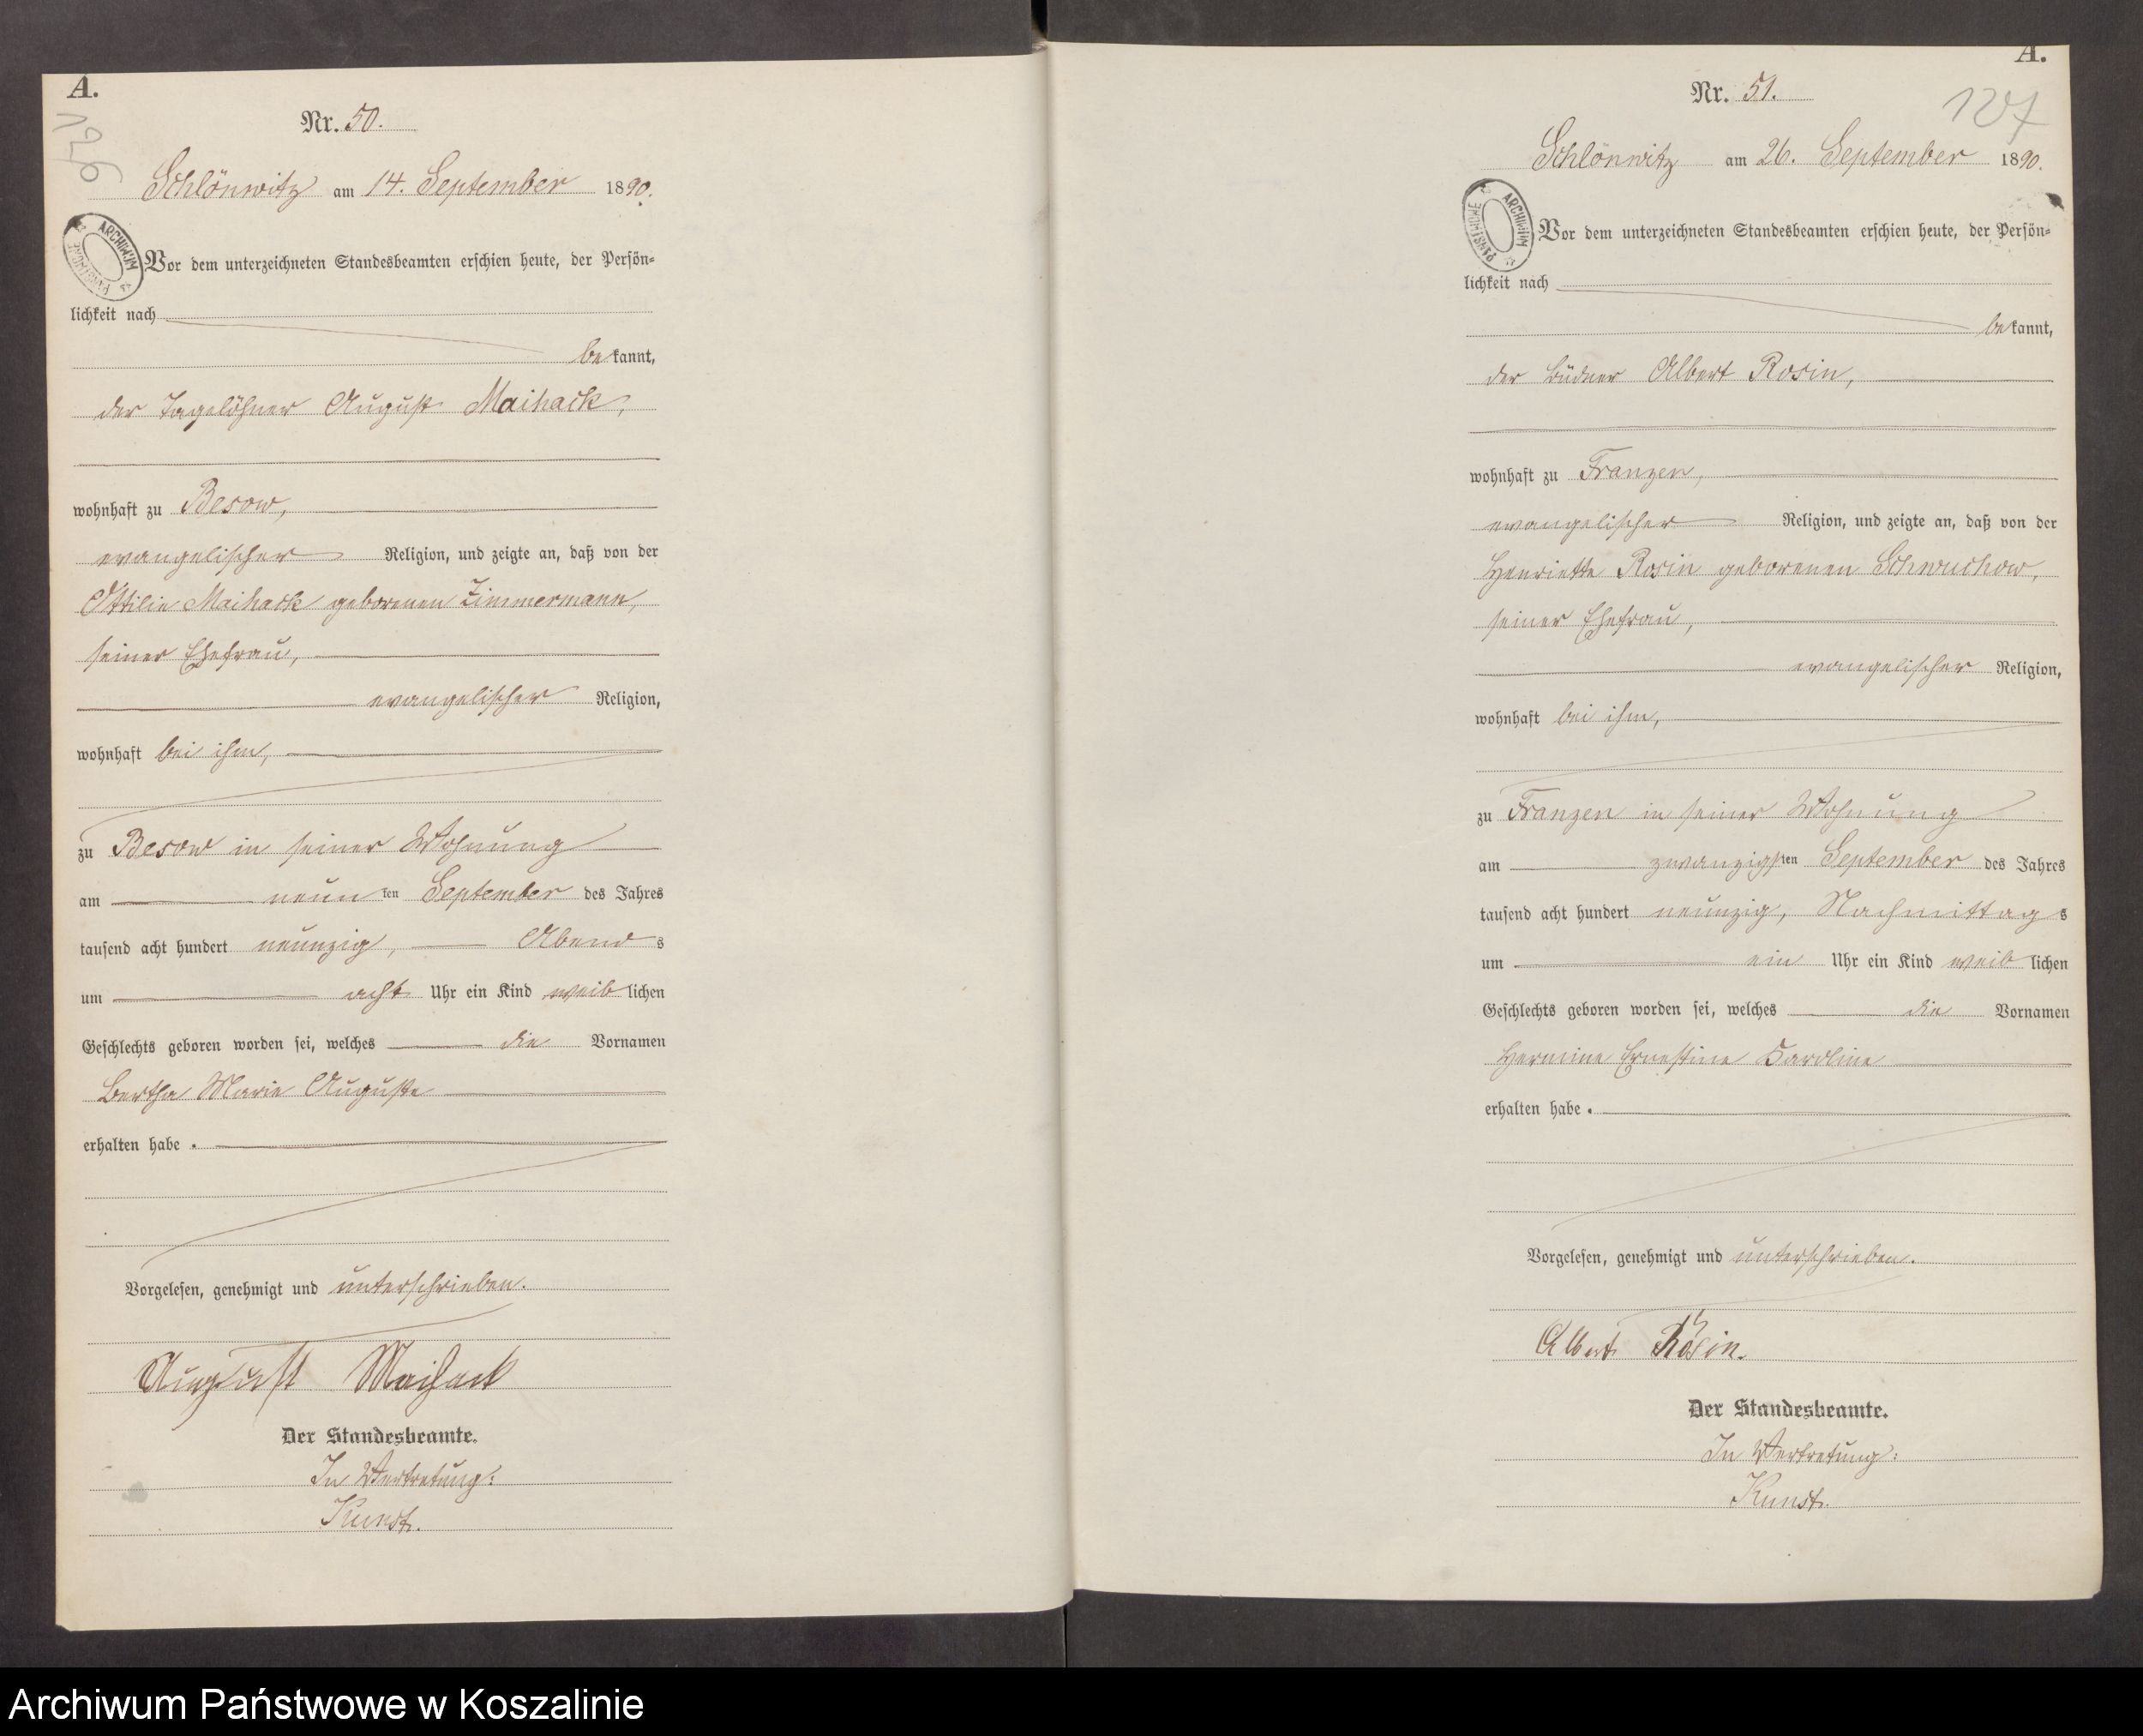 A.
126
Nr. 50.
Schlönwitz am 14. September 1890.
ARCHIWUM PAŃSTWOWE
Vor dem unterzeichneten Standesbeamten erschien heute, der Persön-
lichkeit nach
bekannt,
der Tagelöhner August Maihack,
wohnhaft zu Besow,
evangelischer Religion, und zeigte an, daß von der
Ottilie Maihack geborenen Zimmermann,
seiner Ehefrau,
evangelischer Religion,
wohnhaft bei ihm,
zu Besow in seiner Wohnung
am neunten September des Jahres
tausend acht hundert neunzig, Abends
um acht Uhr ein Kind weiblichen
Geschlechts geboren worden sei, welches die Vornamen
Bertha Marie Auguste
erhalten habe.
Vorgelesen, genehmigt und unterschrieben.
August Maihack
Der Standesbeamte.
In Vertretung:
Kunst.
A.
127
Nr. 51.
Schlönwitz am 26. September 1890.
ARCHIWUM PAŃSTWOWE
Vor dem unterzeichneten Standesbeamten erschien heute, der Persön-
lichkeit nach
bekannt,
der Büdner Albert Rosin,
wohnhaft zu Franzen,
evangelischer Religion, und zeigte an, daß von der
Henriette Rosin geborenen Schwuchow,
seiner Ehefrau,
evangelischer Religion,
wohnhaft bei ihm,
zu Franzen in seiner Wohnung
am zwanzigsten September des Jahres
tausend acht hundert neunzig, Nachmittags
um ein Uhr ein Kind weiblichen
Geschlechts geboren worden sei, welches die Vornamen
Hermine Ernestine Karoline
erhalten habe.
Vorgelesen, genehmigt und unterschrieben.
Albert Rosin.
Der Standesbeamte.
In Vertretung:
Kunst.
Archiwum Państwowe w Koszalinie